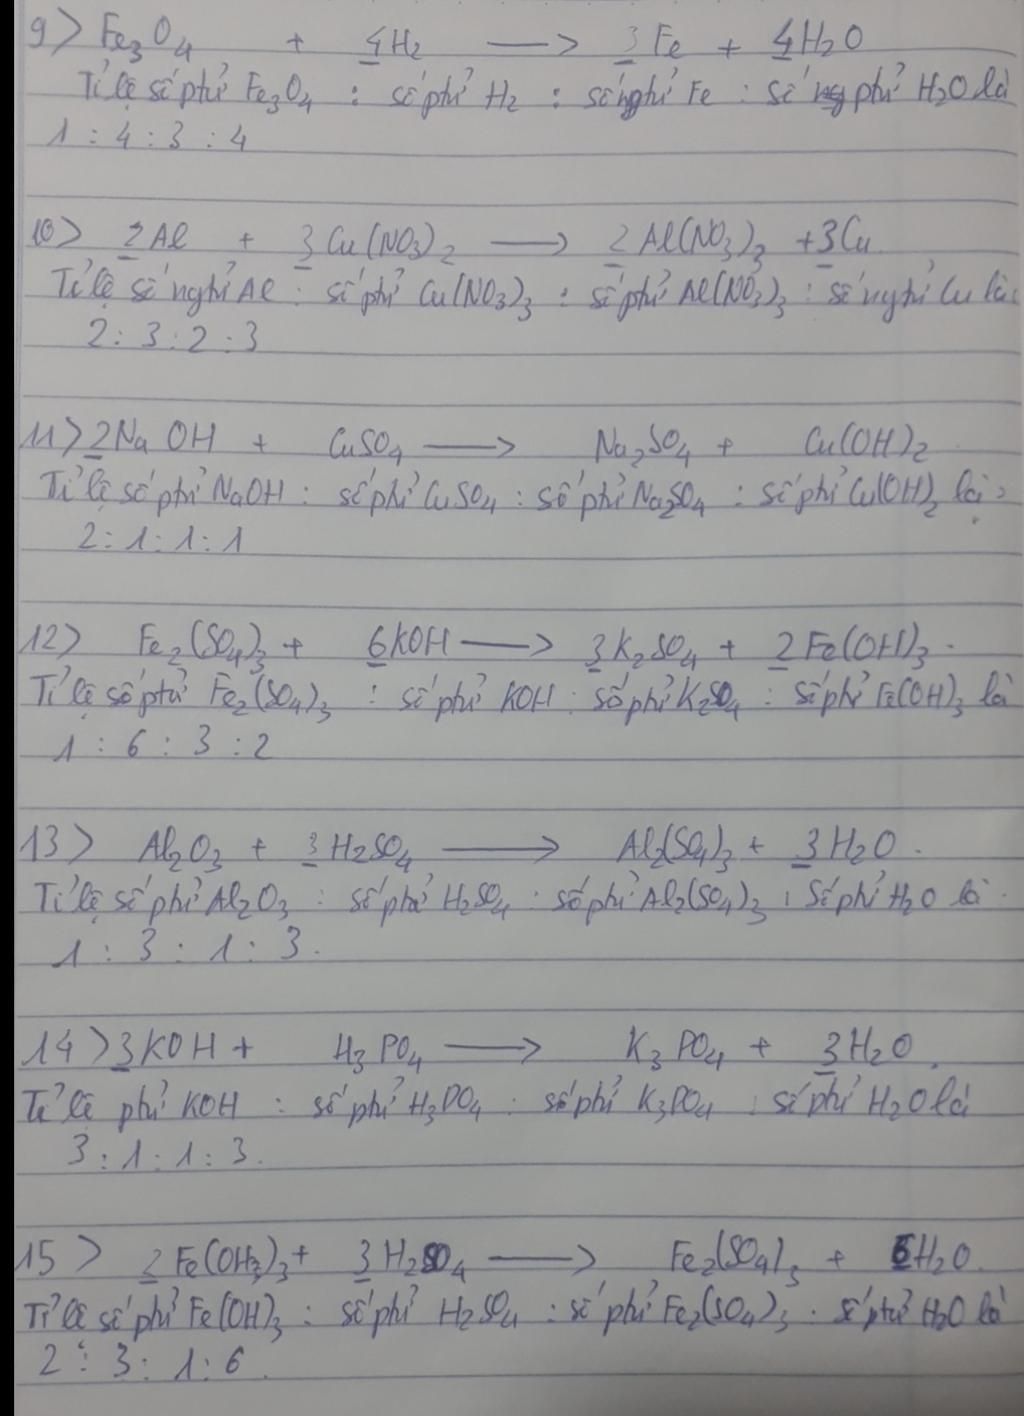 9> Fe₃O₄ + 4H₂ ⟶ 3Fe + 4H₂O
Tỉ lệ số ptử Fe₃O₄ : số ptử H₂ : số ngtử Fe : số ptử H₂O là
1 : 4 : 3 : 4
10> 2Al + 3Cu(NO₃)₂ ⟶ 2Al(NO₃)₃ + 3Cu
Tỉ lệ số ngtử Al : số ptử Cu(NO₃)₃ : số ptử Al(NO₃)₃ : số ngtử Cu là:
2 : 3 : 2 : 3
11> 2NaOH + CuSO₄ ⟶ Na₂SO₄ + Cu(OH)₂
Tỉ lệ số ptử NaOH : số ptử CuSO₄ : số ptử Na₂SO₄ : số ptử Cu(OH)₂ là:
2 : 1 : 1 : 1
12> Fe₂(SO₄)₃ + 6KOH ⟶ 3K₂SO₄ + 2Fe(OH)₃.
Tỉ lệ số ptử Fe₂(SO₄)₃ : số ptử KOH : số ptử K₂SO₄ : số ptử Fe(OH)₃ là
1 : 6 : 3 : 2
13> Al₂O₃ + 3H₂SO₄ ⟶ Al₂(SO₄)₃ + 3H₂O.
Tỉ lệ số ptử Al₂O₃ : số ptử H₂SO₄ : số ptử Al₂(SO₄)₃ : số ptử H₂O là.
1 : 3 : 1 : 3.
14> 3KOH + H₃PO₄ ⟶ K₃PO₄ + 3H₂O.
Tỉ lệ ptử KOH : số ptử H₃PO₄ : số ptử K₃PO₄ : số ptử H₂O là
3 : 1 : 1 : 3.
15> 2Fe(OH₃)₃ + 3H₂SO₄ ⟶ Fe₂(SO₄)₃ + 6H₂O.
Tỉ lệ số ptử Fe(OH)₃ : số ptử H₂SO₄ : số ptử Fe₂(SO₄)₃ : số ptử H₂O là
2 : 3 : 1 : 6.